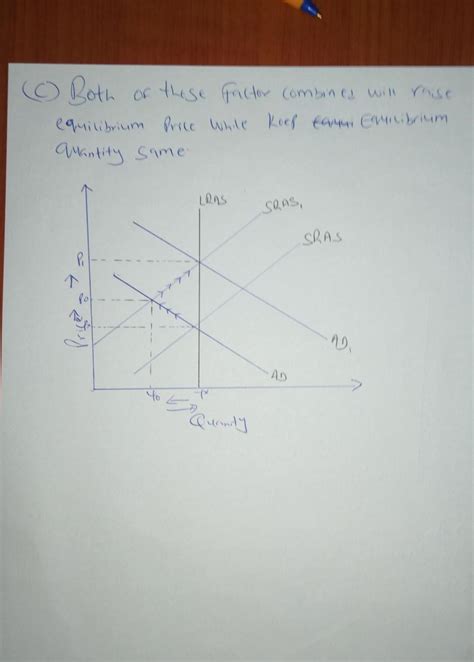 (C) Both of these factor combines will raise
equilibrium Price while keep Equilibrium
Quantity same.
LRAS
SRAS₁
SRAS
P₁
P0
Price
AD₁
AD
Y0
Quantity